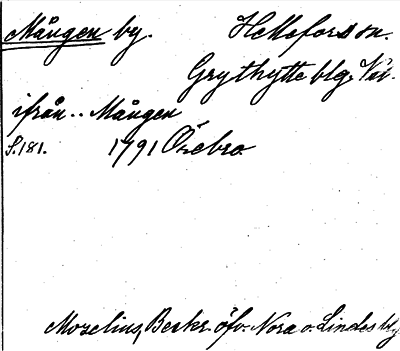 Mången by. Hellefors sn.
Grythytte blg. Vsi.
ifrån .. Mången
S. 181. 1791 Örebro
Moselius, Beskr. öfv. Nora o. Lindes blg